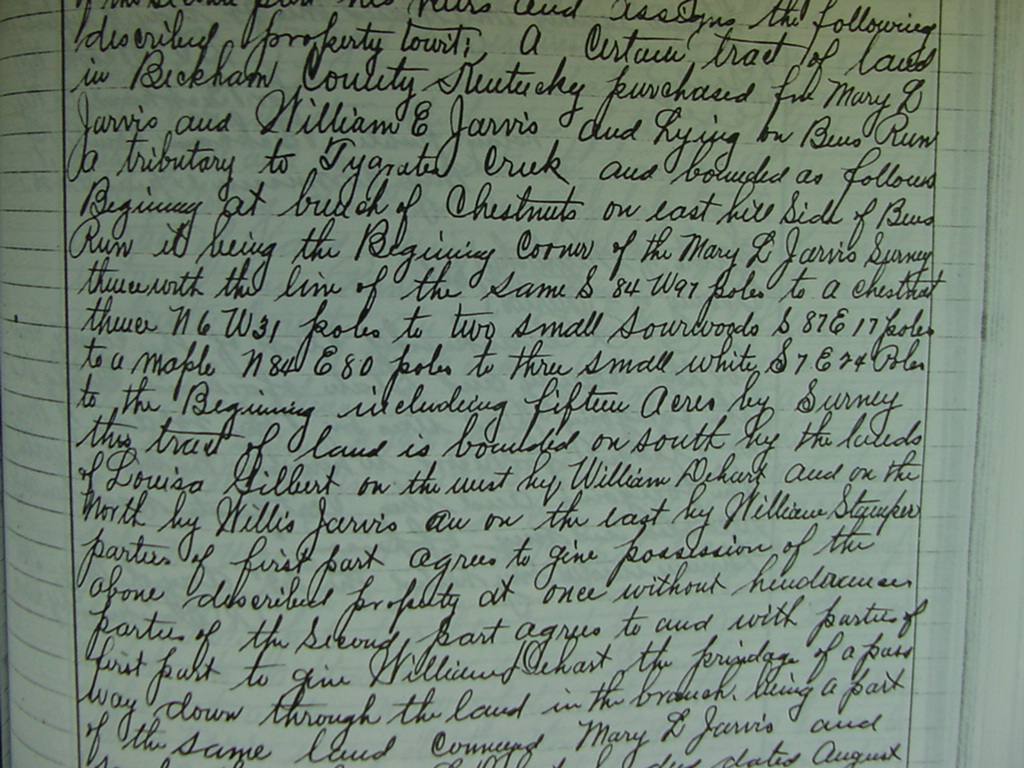 of the second part his heirs and assigns the following
described property towit; A Certain tract of land
in Beckham County Kentucky purchased fm Mary L
Jarvis and William E Jarvis and Lying on Bens Run
a tributary to Tygrates Creek and bounded as follows
Begining at bunch of Chestnuts on east hill Side of Bens
Run it being the Begining Cooner of the Mary L Jarvis Survey
thence with the line of the same S 84 W97 poles to a chestnut
thence N6 W31 poles to two small sourwoods S 87E 17 poles
to a maple N84 E80 poles to three small white S7 E24 Poles
to the Begining including fifteen Acres by Survey
this tract of land is bounded on south by the lands
of Louisa Gilbert on the west by William Dehart and on the
North by Willis Jarvis an on the east by William Stamper
parties of first part agrees to give possession of the
above described property at once without hinderances
parties of the second part agrees to and with parties of
first part to give William Dehart the of a pass
way down through the land in the branch. being a part
of the same land Mary L Jarvis and
dated August